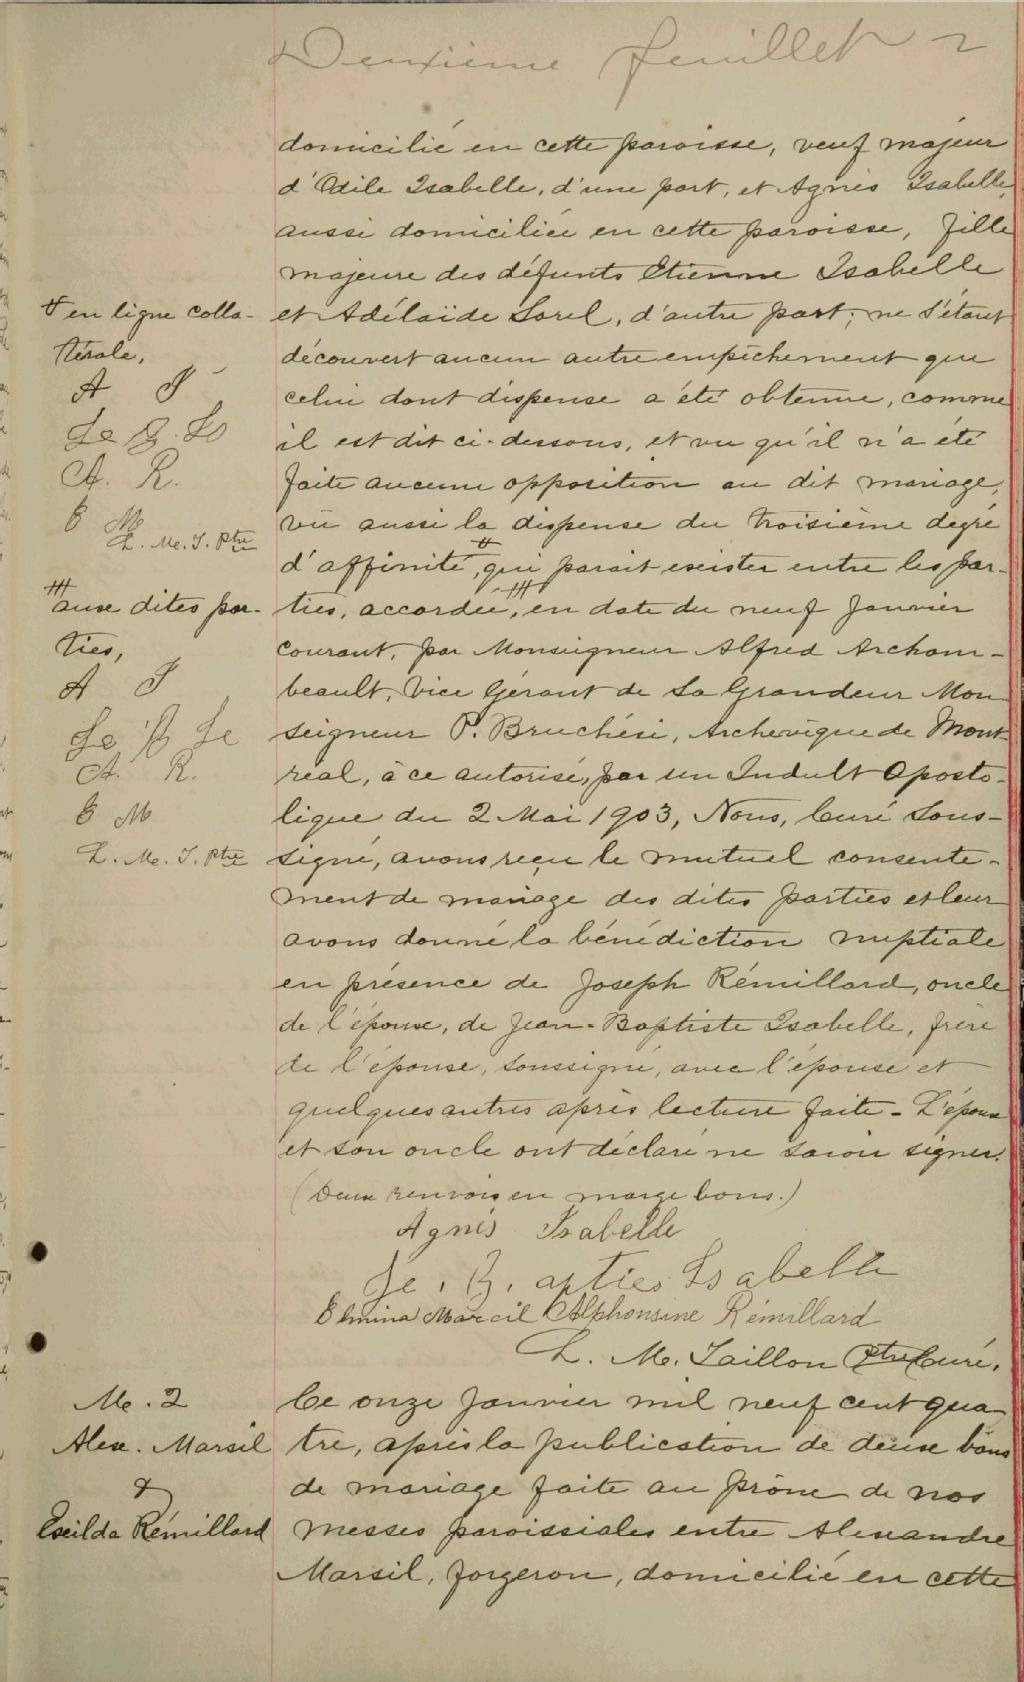 Deuxième feuillet 2
domicilié en cette paroisse, veuf majeur
d'Odile Isabelle, d'une part, et Agnès Isabelle,
aussi domiciliée en cette paroisse, fille
majeure des défunts Etienne Isabelle
et Adélaïde Sorel, d'autre part; ne s'étant
découvert aucun autre empêchement que
celui dont dispense a été obtenue, comme
il est dit ci-dessous, et vu qu'il n'a été
faite aucune opposition au dit mariage,
vu aussi la dispense du troisième degré
d'affinité, # qui parait exister entre les par-
ties, accordée, ### en date du neuf Janvier
courant, par Monseigneur Alfred Archam-
beault, Vice Gérant de Sa Grandeur Mon
seigneur P. Bruchési, Archevêque de Mont-
réal, à ce autorisé, par un Indult Aposto-
lique du 2 Mai 1903, Nous, Curé sous-
signé, avons reçu le mutuel consente-
ment de mariage des dites parties et leur
avons donné la bénédiction nuptiale
en présence de Joseph Rémillard, oncle
de l'épouse, de Jean-Baptiste Isabelle, frère
de l'épouse, soussigné, avec l'épouse et
quelques autres après lecture faite - L'époux
et son oncle ont déclaré ne savoir signer.
(Deux renvois en marge bons.)
Agnès Isabelle
Je. B. apties Isabelle
Elmina Marcil Alphonsine Rémillard
L. M. Taillon Ptre Curé.
# en ligne colla-
térale,
A I
Je B. Is
A. R.
E M
L. M. T. Ptre
### aux dites par-
ties,
A I
Je B Is
A. R.
E M
L. M. T. Ptre
M. 2
Alex. Marsil
&
Exilda Rémillard
Ce onze Janvier mil neuf cent qua-
tre, après la publication de deux bans
de mariage faite au prône de nos
messes paroissiales entre Alexandre
Marsil, forgeron, domicilié en cette